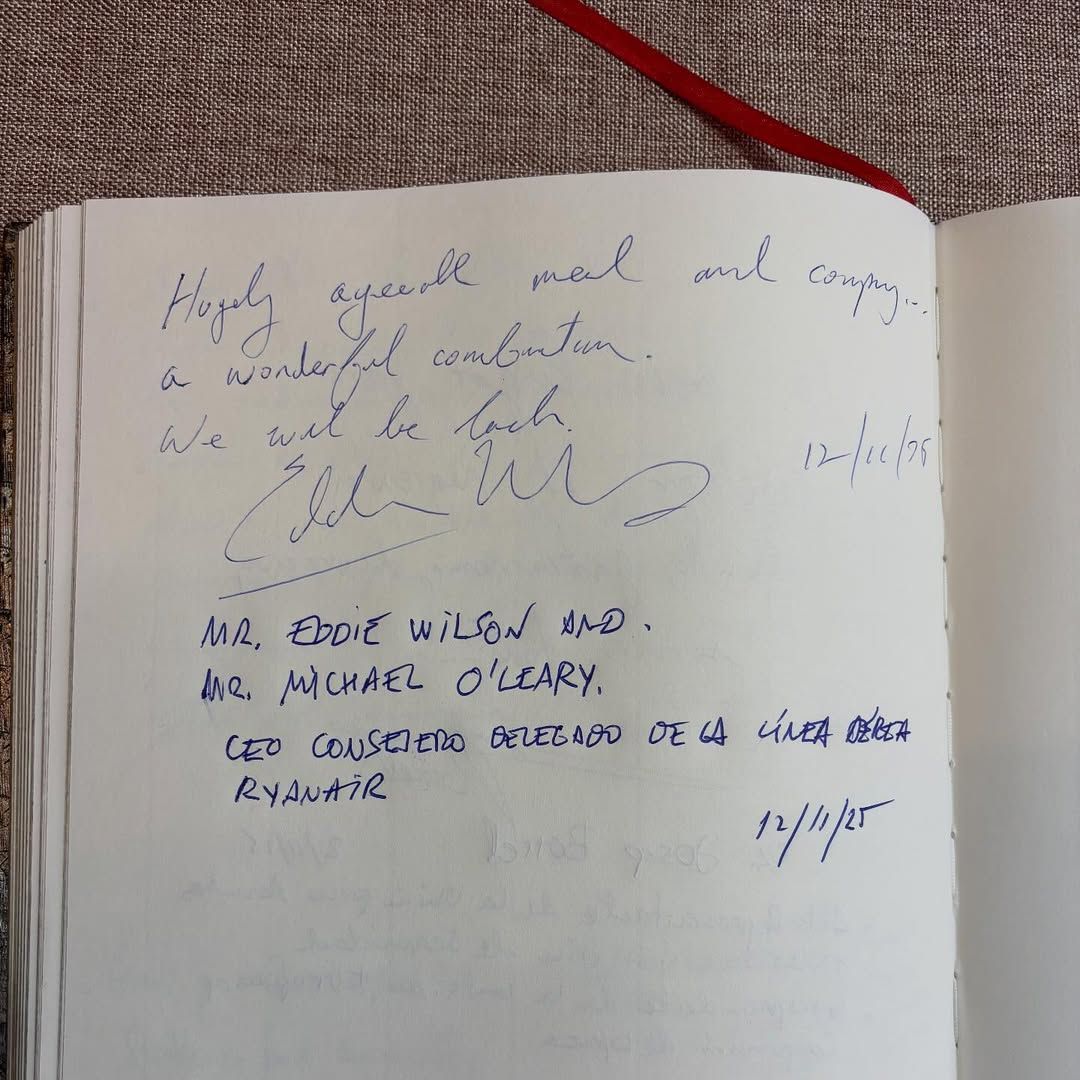 Hugely agreeable meal and company...
a wonderful combination.
We will be back.
12/11/25
Eddie Wilson
MR. EDDIE WILSON AND.
MR. MICHAEL O'LEARY.
CEO CONSEJERO DELEGADO DE LA LÍNEA AÉREA
RYANAIR
12/11/25